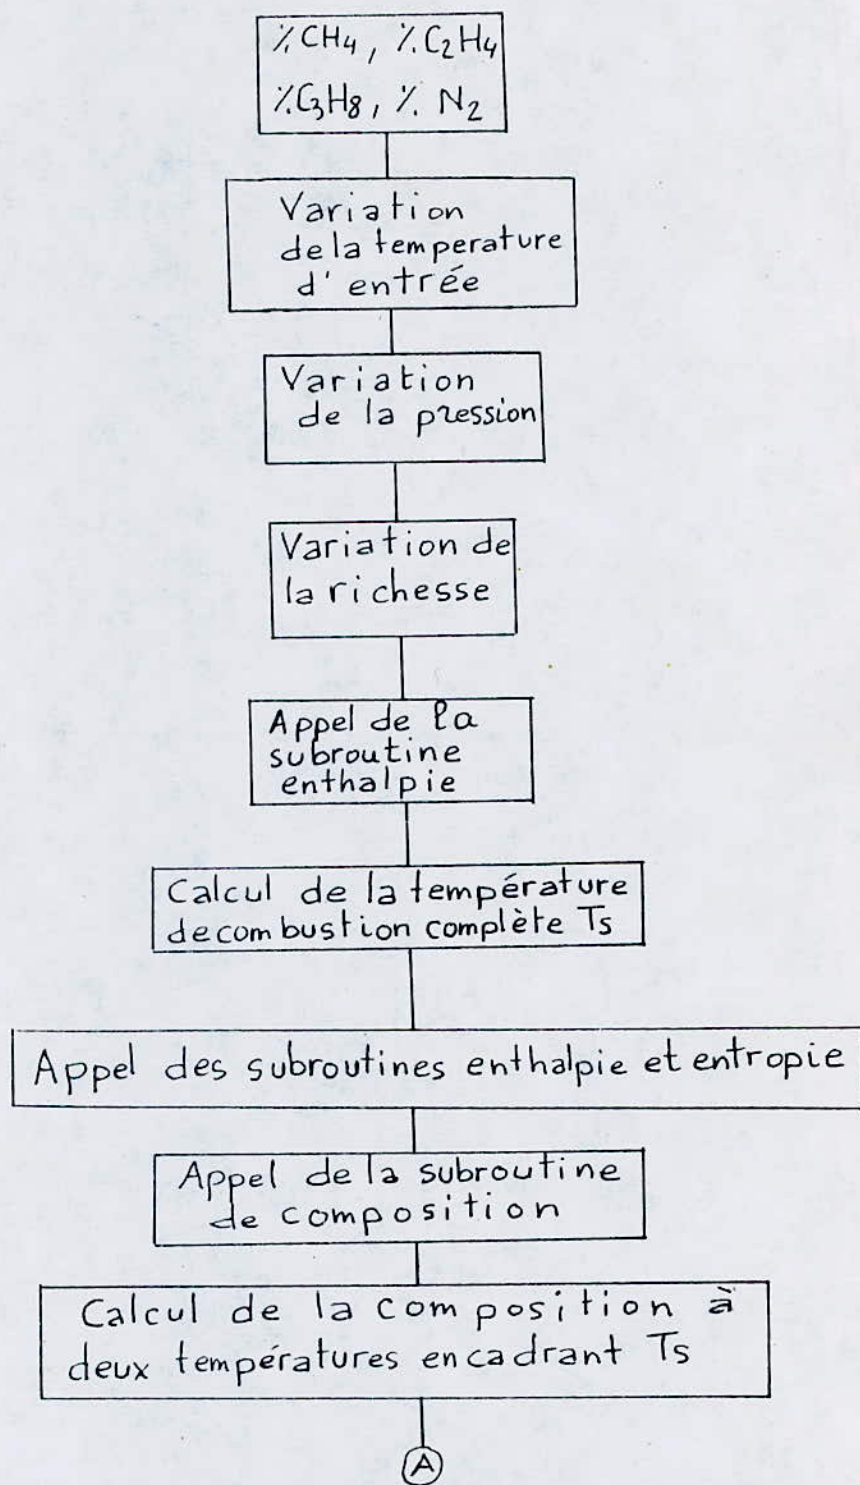 % CH4, % C2H4
% C3H8, % N2
Variation
de la temperature
d'entrée
Variation
de la pression
Variation de
la richesse
Appel de la
subroutine
enthalpie
Calcul de la température
de combustion complète Ts
Appel des subroutines enthalpie et entropie
Appel de la subroutine
de composition
Calcul de la composition à
deux températures encadrant Ts
A